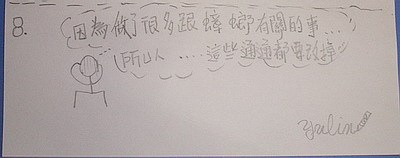 8.
因為做了很多跟蟑螂有關的事...
所以.... 這些通通都要改掉
Yalin